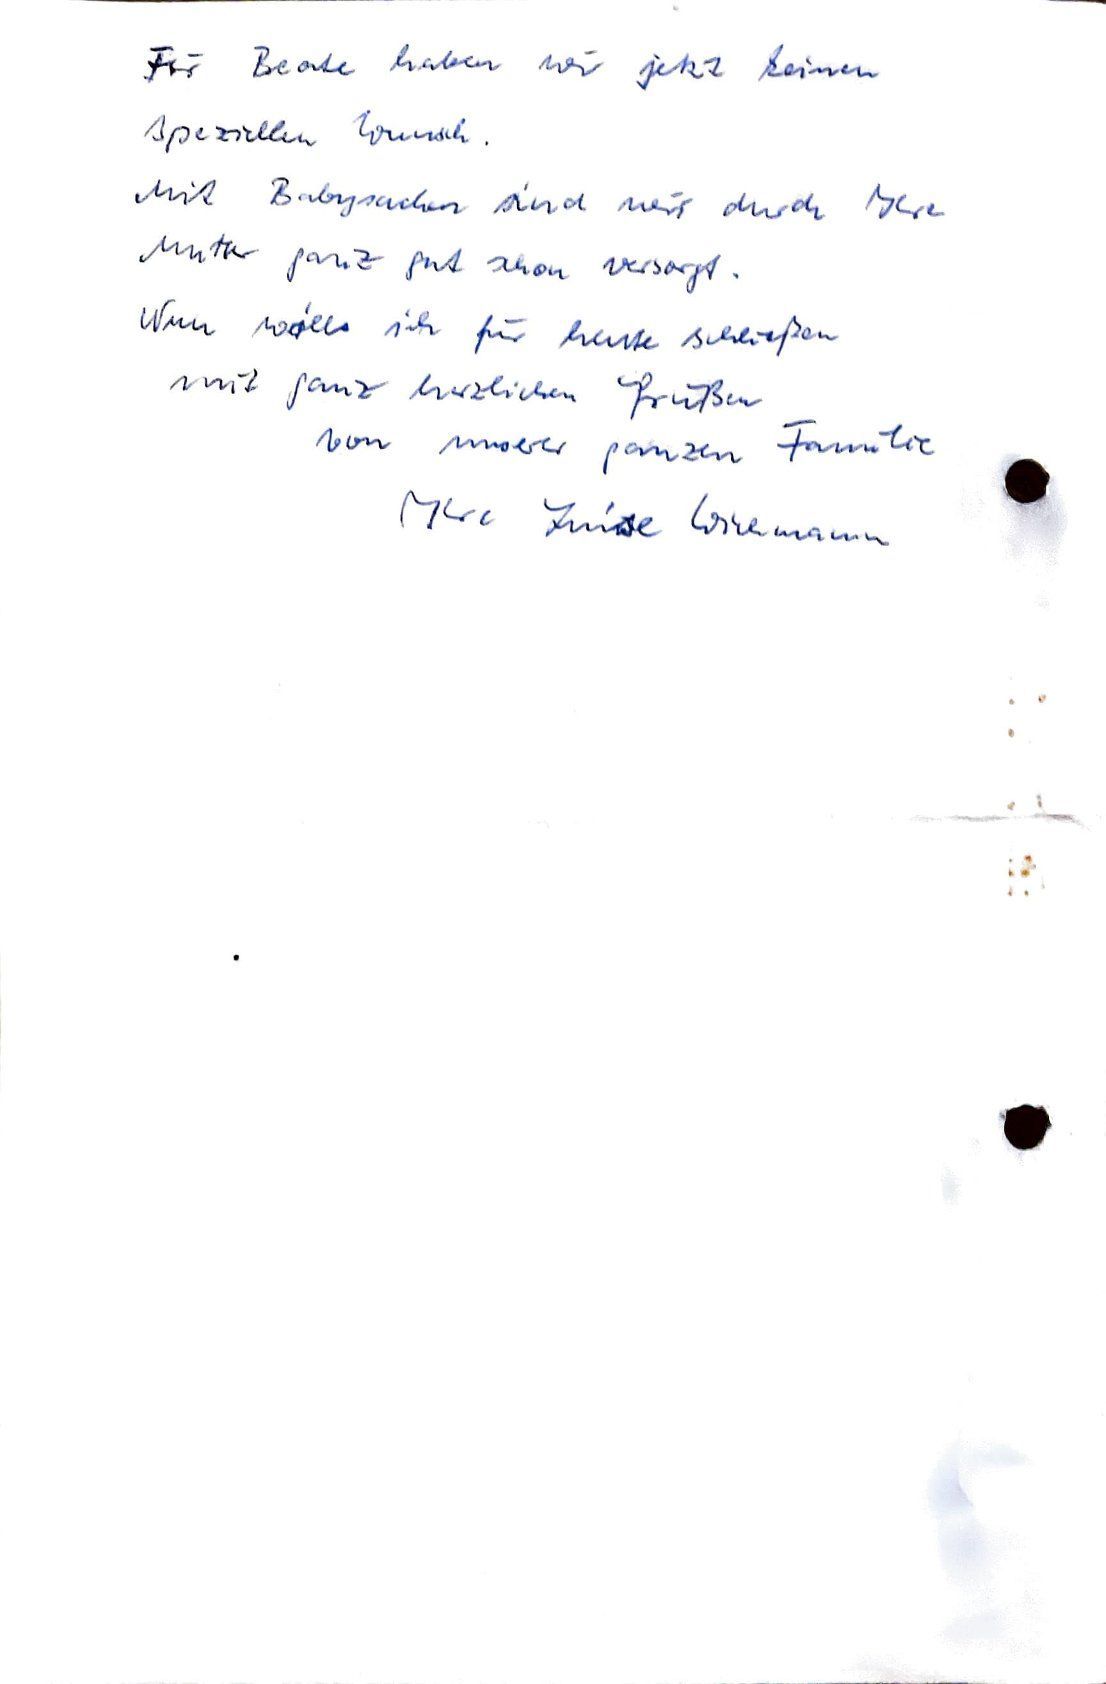 Für Beate haben wir jetzt keinen
speziellen Wunsch.
Mit Babysachen sind wir durch Ihre
Mutter ganz gut schon versorgt.
Nun will ich für heute schließen
mit ganz herzlichen Grüßen
von unserer ganzen Familie
Ihre Luise Wichmann